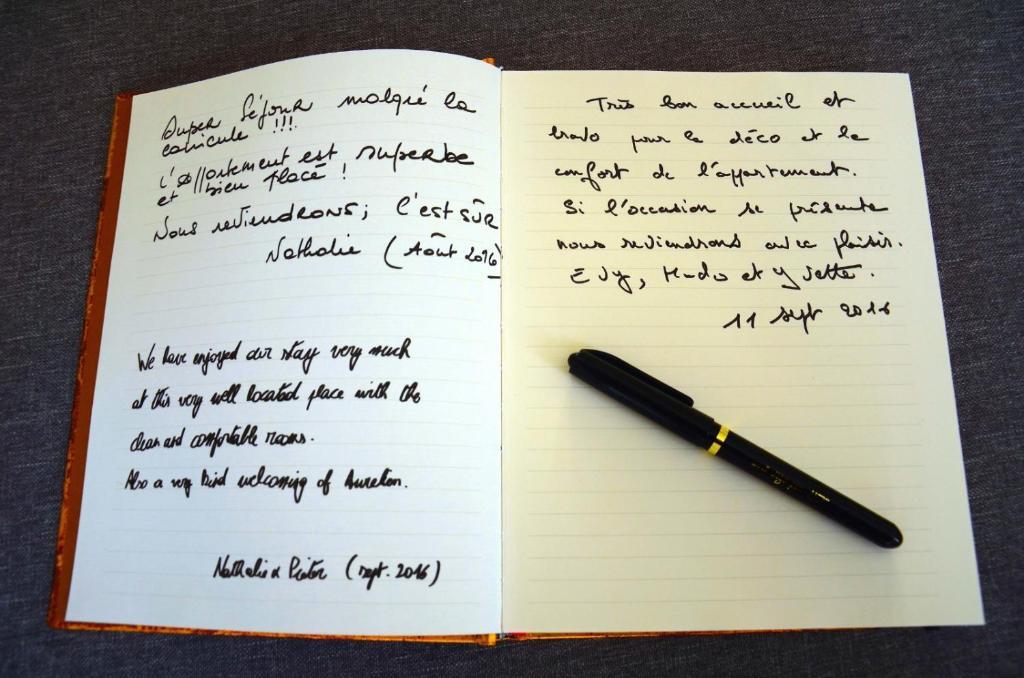 Super Séjour malgré la
canicule !!!
L'appartement est superbe
et bien placé !
Nous reviendrons; c'est sûr
Nathalie (Août 2016)
We have enjoyed our stay very much
at this very well located place with the
clean and comfortable rooms.
Also a very kind welcoming of Aurelien.
Nathalie & Pieter (sept. 2016)
Très bon accueil et
bravo pour la déco et le
confort de l'appartement.
Si l'occasion se présente
nous reviendrons avec plaisir.
Evy, et Yvette.
11 sept 2016